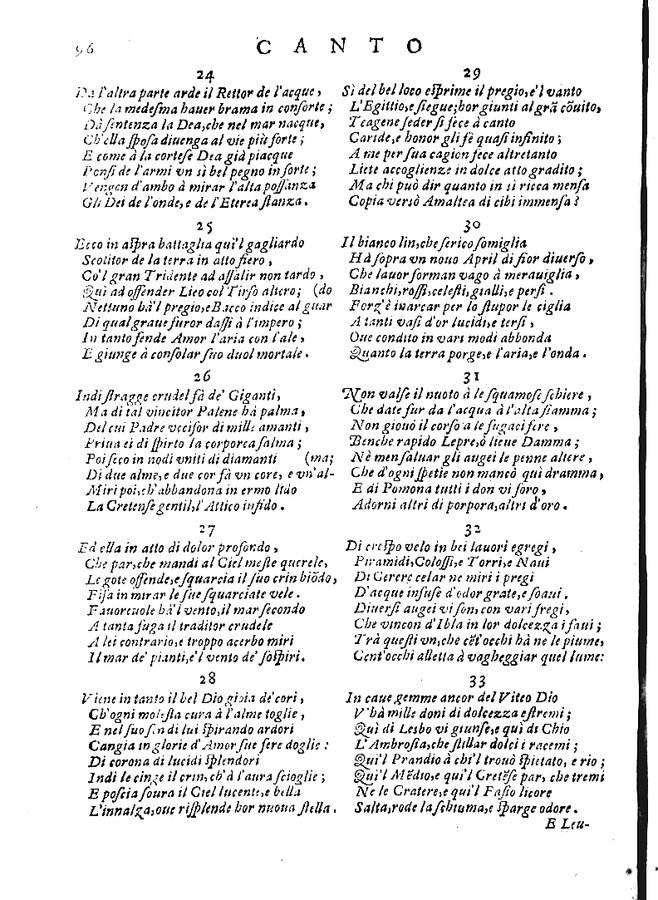 96
CANTO
24
Da l'altra parte arde il Rettor de l'acque,
Che la medesma hauer brama in consorte;
Dà sentenza la Dea, che nel mar nacque,
Ch'ella sposa diuenga al vie più forte;
E come à la cortese Dea già piacque
Ponsi de l'armi vn sì bel pegno in sorte;
Vengon d'ambo à mirar l'alta possanza
Gli Dei de l'onde, e de l'Eterea stanza.
25
Ecco in aspra battaglia qui'l gagliardo
Scotitor de la terra in atto fiero,
Co'l gran Tridente ad assalir non tardo,
Quì ad offender Lieo col Tirso altero; (do
Nettuno hà'l pregio, e Bacco indice al guar
Di qual graue furor dassi à l'impero;
In tanto fende Amor l'aria con l'ale,
E giunge à consolar suo duol mortale.
26
Indi stragge crudel fà de' Giganti,
Ma di tal vincitor Palene hà palma,
Del cui Padre vccisor di mille amanti,
Priua ei di spirto la corporea salma;
Poi seco in nodi vniti di diamanti (ma;
Di due alme, e due cor fà vn core, e vn'al-
Miri poi, ch'abbandona in ermo lido
La Cretense gentil, l'Attico infido.
27
Ed ella in atto di dolor profondo,
Che par, che mandi al Ciel meste querele,
Le gote offende, e squarcia il suo crin biōdo,
Fisa in mirar le sue squarciate vele.
Fauoreuole hà'l vento, il mar secondo
A tanta fuga il traditor crudele
A lei contrario, e troppo acerbo miri
Il mar de' pianti, e'l vento de' sospiri.
28
Viene in tanto il bel Dio gioia de' cori,
Ch'ogni molesta cura à l'alme toglie,
E nel suo sen di lui spirando ardori
Cangia in glorie d'Amor sue fere doglie:
Di corona di lucidi splendori
Indi le cinge il crin, ch'à l'aura scioglie;
E poscia soura il Ciel lucente, e bella
L'innalza, oue risplende hor nuoua stella.
29
Sì del bel loco esprime il pregio, e'l vanto
L'Egittio, e siegue; hor giunti al grā cōuito,
Teagene seder si fece à canto
Caride, e honor gli fè quasi infinito;
A me per sua cagion fece altretanto
Liete accoglienze in dolce atto gradito;
Ma chi può dir quanto in sì ricca mensa
Copia versò Amaltea di cibi immensa?
30
Il bianco lin, che serico somiglia
Hà sopra vn nouo April di fior diuerso,
Che lauor forman vago à merauiglia,
Bianchi, rossi, celesti, gialli, e persi.
Forz'è inarcar per lo stupor le ciglia
A tanti vasi d'or lucidi, e tersi,
Oue condito in vari modi abbonda
Quanto la terra porge, e l'aria, e l'onda.
31
Non valse il nuoto à le squamose schiere,
Che date fur da l'acqua à l'alta fiamma;
Non giouò il corso à le fugaci fere,
Benche rapido Lepre, ò lieue Damma;
Nè men saluar gli augei le penne altere,
Che d'ogni spetie non mancò quì dramma,
E di Pomona tutti i don vi foro,
Adorni altri di porpora, altri d'oro.
32
Di crespo velo in bei lauori egregi,
Piramidi, Colossi, e Torri, e Naui
Di Cerere celar ne miri i pregi
D'acque infuse d'odor grate, e soaui.
Diuersi augei vi son, con vari fregi,
Che vincon d'Ibla in lor dolcezza i faui;
Trà questi vn, che cēt'occhi hà ne le piume,
Cent'occhi alletta à vagheggiar quel lume:
33
In caue gemme ancor del Viteo Dio
V'hà mille doni di dolcezza estremi;
Quì di Lesbo vi giunse, e quì di Chio
L'Ambrosia, che stillar dolci i racemi;
Qui'l Prandio à chi'l trouò spietato, e rio;
Qui'l Mēdio, e qui'l Cretēse par, che tremi
Ne le Cratere, e qui'l Fasio licore
Salta, rode la schiuma, e sparge odore.
E Leu-